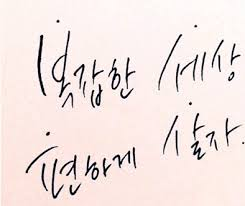 복잡한 세상
편하게 살자.